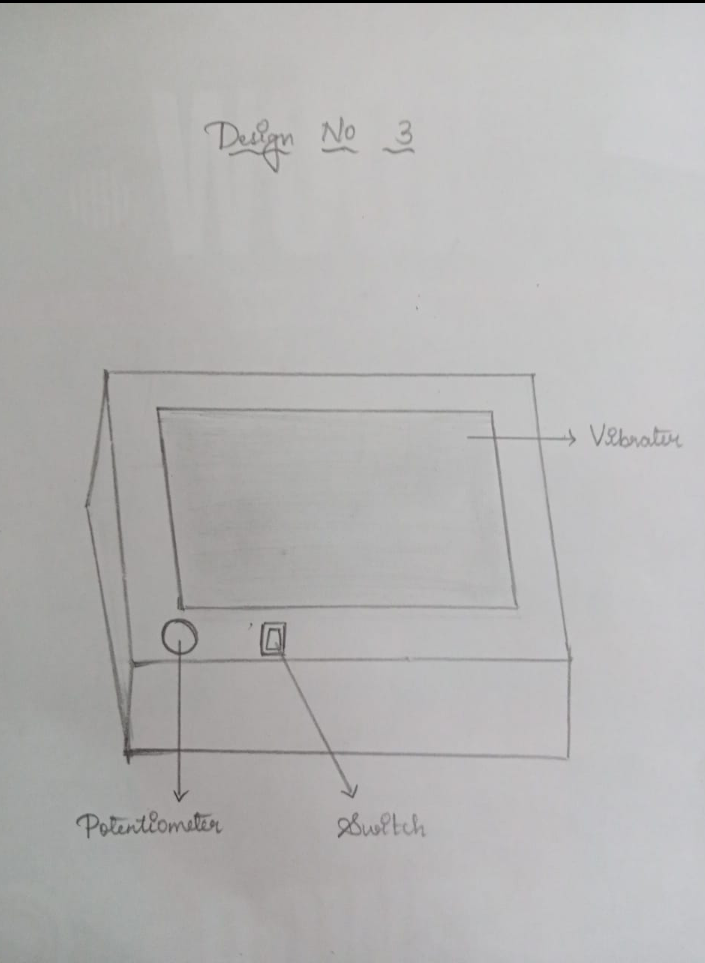 Design No 3
Vibrator
Potentiometer
Switch